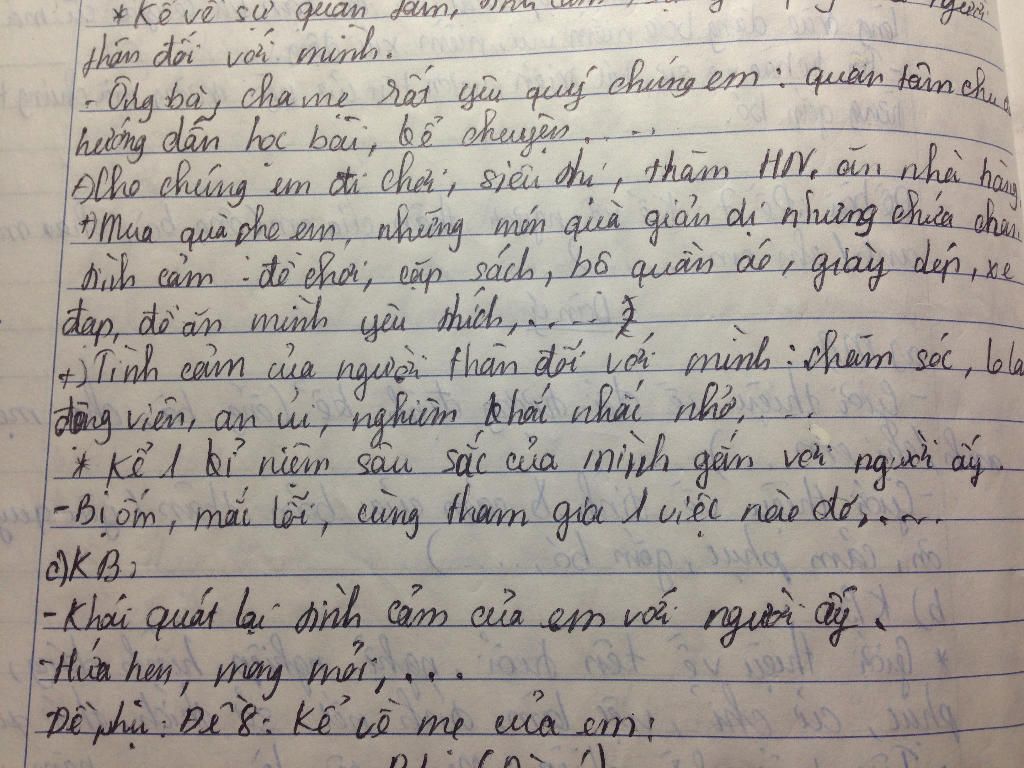 * Kể về sự quan tâm, tình cảm, người
thân đối với mình.
- Ông bà, cha mẹ rất yêu quý chúng em : quan tâm
hướng dẫn học bài, kể chuyện....
+) Cho chúng em đi chơi, siêu thị, thăm HN, ăn nhà hàng,
+) Mua quà cho em, những món quà giản dị nhưng chứa chan
tình cảm : đồ chơi, cặp sách, bộ quần áo, giày dép, xe
đạp, đồ ăn mình yêu thích,.....
+) Tình cảm của người thân đối với mình : chăm sóc,
động viên, an ủi, nghiêm khắc nhắc nhở,...
* Kể 1 kỉ niệm sâu sắc của mình gắn với người ấy.
- Bị ốm, mắc lỗi, cùng tham gia 1 việc nào đó,....
c) KB:
- Khái quát lại tình cảm của em với người ấy.
- Hứa hẹn, mong mỏi,...
Đề phụ : Đề 8 : Kể về mẹ của em!